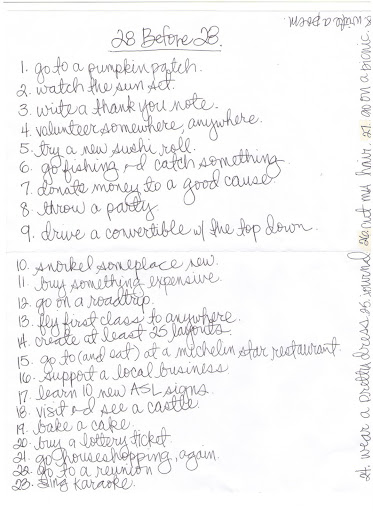 28 Before 28.
1. go to a pumpkin patch.
2. watch the sun set.
3. write a thank you note.
4. volunteer somewhere, anywhere.
5. try a new sushi roll.
6. go fishing and catch something
7. donate money to a good cause.
8. throw a party.
9. drive a convertible w/ the top down.
10. snorkel someplace new.
11. buy something expensive.
12. go on a roadtrip.
13. fly first class to anywhere.
14. create at least 25 layouts.
15. go to (and eat) at a michelin star restaurant.
16. support a local business
17. learn 10 new ASL signs.
18. visit and see a castle.
19. bake a cake.
20. buy a lottery ticket.
21. go houseshopping, again.
22. go to a reunion
23. sing karaoke.
24. wear a pretty dress. 25. journal 26. cut my hair. 27. go on a picnic.
28. write a poem.